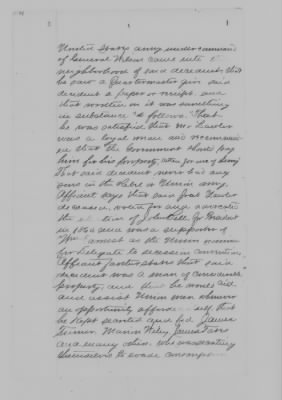 2
United States army under command
of General Wilson came into
neighborhood of said decedent; that
he saw a Quartermaster give said
decedent a paper or receipt and
that written on it was something
in substance as follows: "That
he was satisfied that Mr Lawler
was a loyal man and recommen
ed that the Government should pay
him for his property, taken for use of army"
That said decedent never had any
sons in the Rebel or Union army.
Affiant says that said
deceased voted for and advocate
the election of John Bell for President
in 1860 and was a supporter of
Wm as the Union nominee
for Delegate to secession convention.
Affiant further states that said
decedent was a man of considerable
property, and that he would aid
and assist Union men whenever
an opportunity afforded that
he kept secreted and fed James
Turner, Marion Wiley, James Tate
and many others who were
themselves to evade